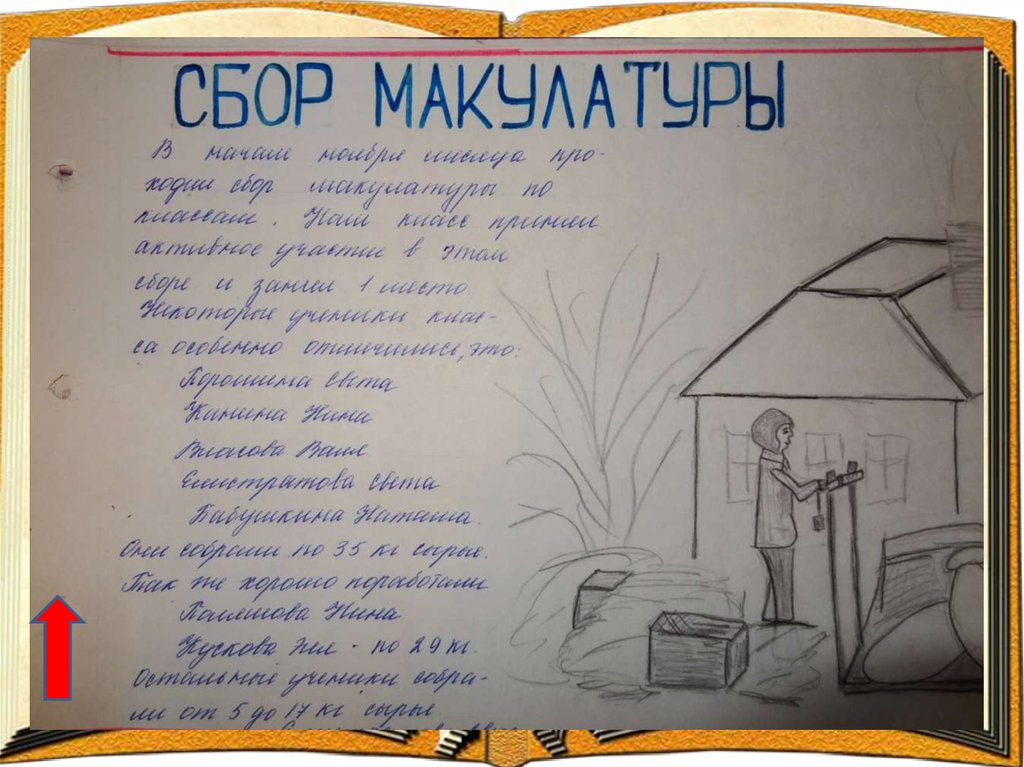 СБОР МАКУЛАТУРЫ
В начале ноября месяца про-
ходил сбор макулатуры по
классам. Наш класс принял
активное участие в этом
сборе и занял 1 место.
Некоторые ученики клас-
са особенно отличились, это:
Порошина Света
Канина Нина
Власова Валя
Елистратова Света
Бабушкина Наташа.
Они собрали по 35 кг сырья.
Так же хорошо поработали
Нина
Кускова - по 29 кг.
Остальные ученики собра-
ли от 5 до 17 кг сырья